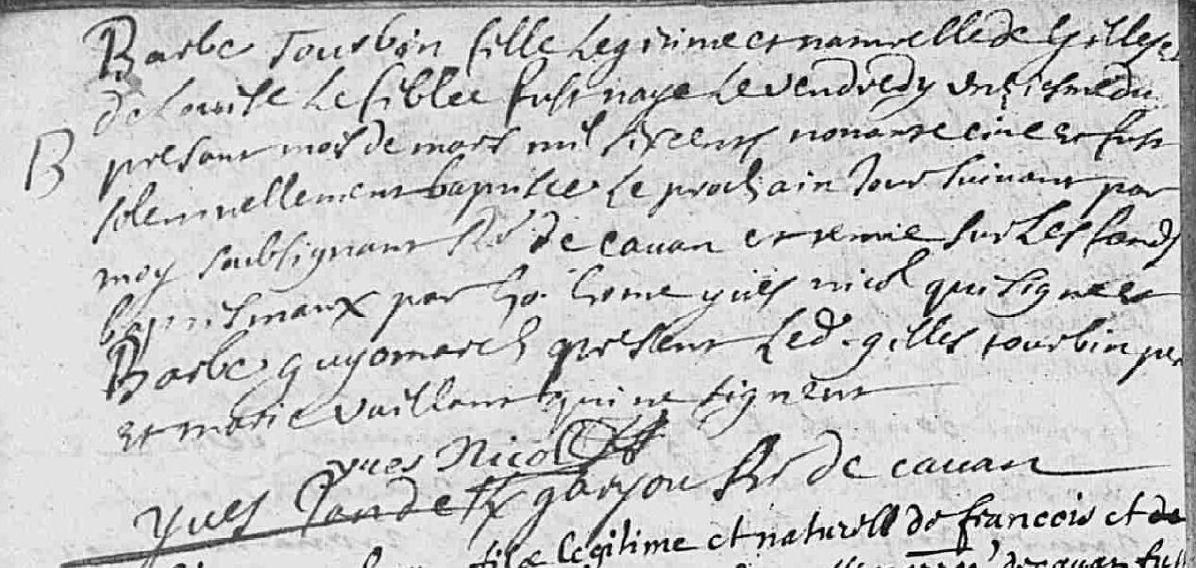 Barbe Tourbin fille Legitime et naturelle de Gilles et
de Louise Le fiblec fust naye Le vendredy unziesme du
B
presant mois de mars mil six cents nonante cinc et fust
solemnellement baptisee Le prochain Jour suivant par
moy soubsignant Rr de cavan et tenue sur Les fonds
baptismaux par ho. home yues nicol qui signe et
Barbe guyomarch present Led. gilles tourbin per
et marie vaillant qui ne signent
yues Nicol
yues garjou Rr de cavan
fils legitime et naturell de francois et de